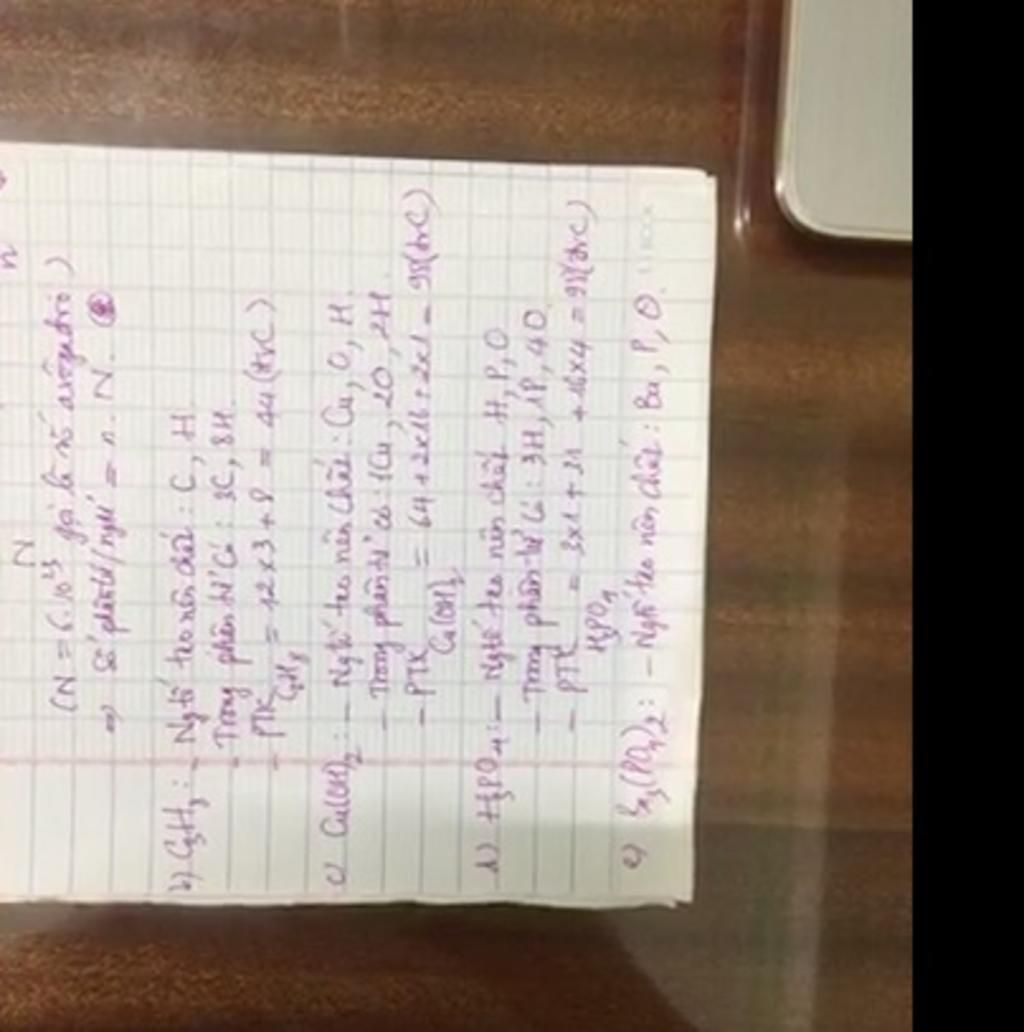 N
(N = 6.10²³ gọi là số avôgađrô)
=> Số phân tử/ngtử = n. N.
b) C₃H₈: - Ngtố tạo nên chất: C, H
- Trong phân tử có: 3C, 8H.
- PTK C₃H₈ = 12x3+8 = 44 (đvC)
c) Cu(OH)₂: - Ngtố tạo nên chất: Cu, O, H.
- Trong phân tử có: 1Cu, 2O, 2H
- PTK Cu(OH)₂ = 64+2x16+2x1 = 98(đvC)
d) H₃PO₄: - Ngtố tạo nên chất H, P, O
- Trong phân tử có: 3H, 1P, 4O.
- PTK H₃PO₄ = 3x1+31+16x4 = 98(đvC)
e) (PO₄)₂: - Ngtố tạo nên chất: P, O.